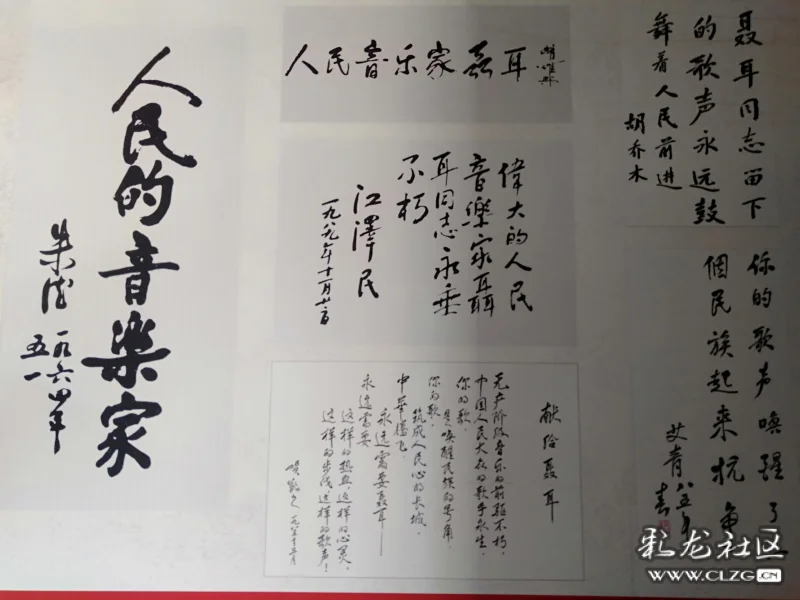 人民的音樂家
朱德 一九六四年
五一
人民音乐家聂耳
偉大的人民
音樂家聶
耳同志永垂
不朽
江澤民
一九八九年十一月廿一日
献给聂耳
无产阶级音乐的前驱不朽，
中国人民大众的歌手永生，
你的歌，
是唤醒民族的号角，
你的歌，
筑成人民心的长城，
中华腾飞，
永远需要聂耳——
永远需要
这样的热血，这样的心灵，
这样的步伐，这样的歌声！
聂耳同志留下
的歌声永远鼓
舞着人民前进
胡乔木
你的歌声唤醒了
個民族起来抗争
艾青 八五年
春
彩龙社区
WWW.CLZG.CN